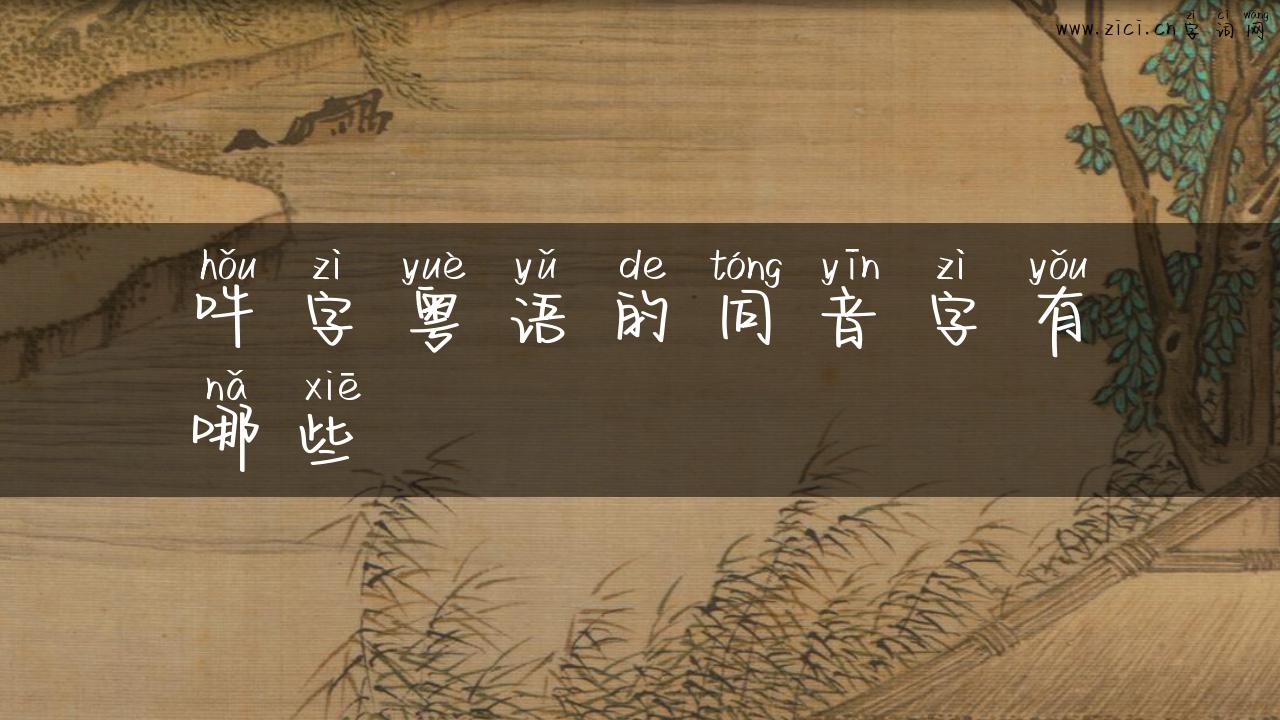 zì cí wǎng
www.zici.cn字词网
hǒu zì yuè yǔ de tóng yīn zì yǒu
吽字粤语的同音字有
nǎ xiē
哪些